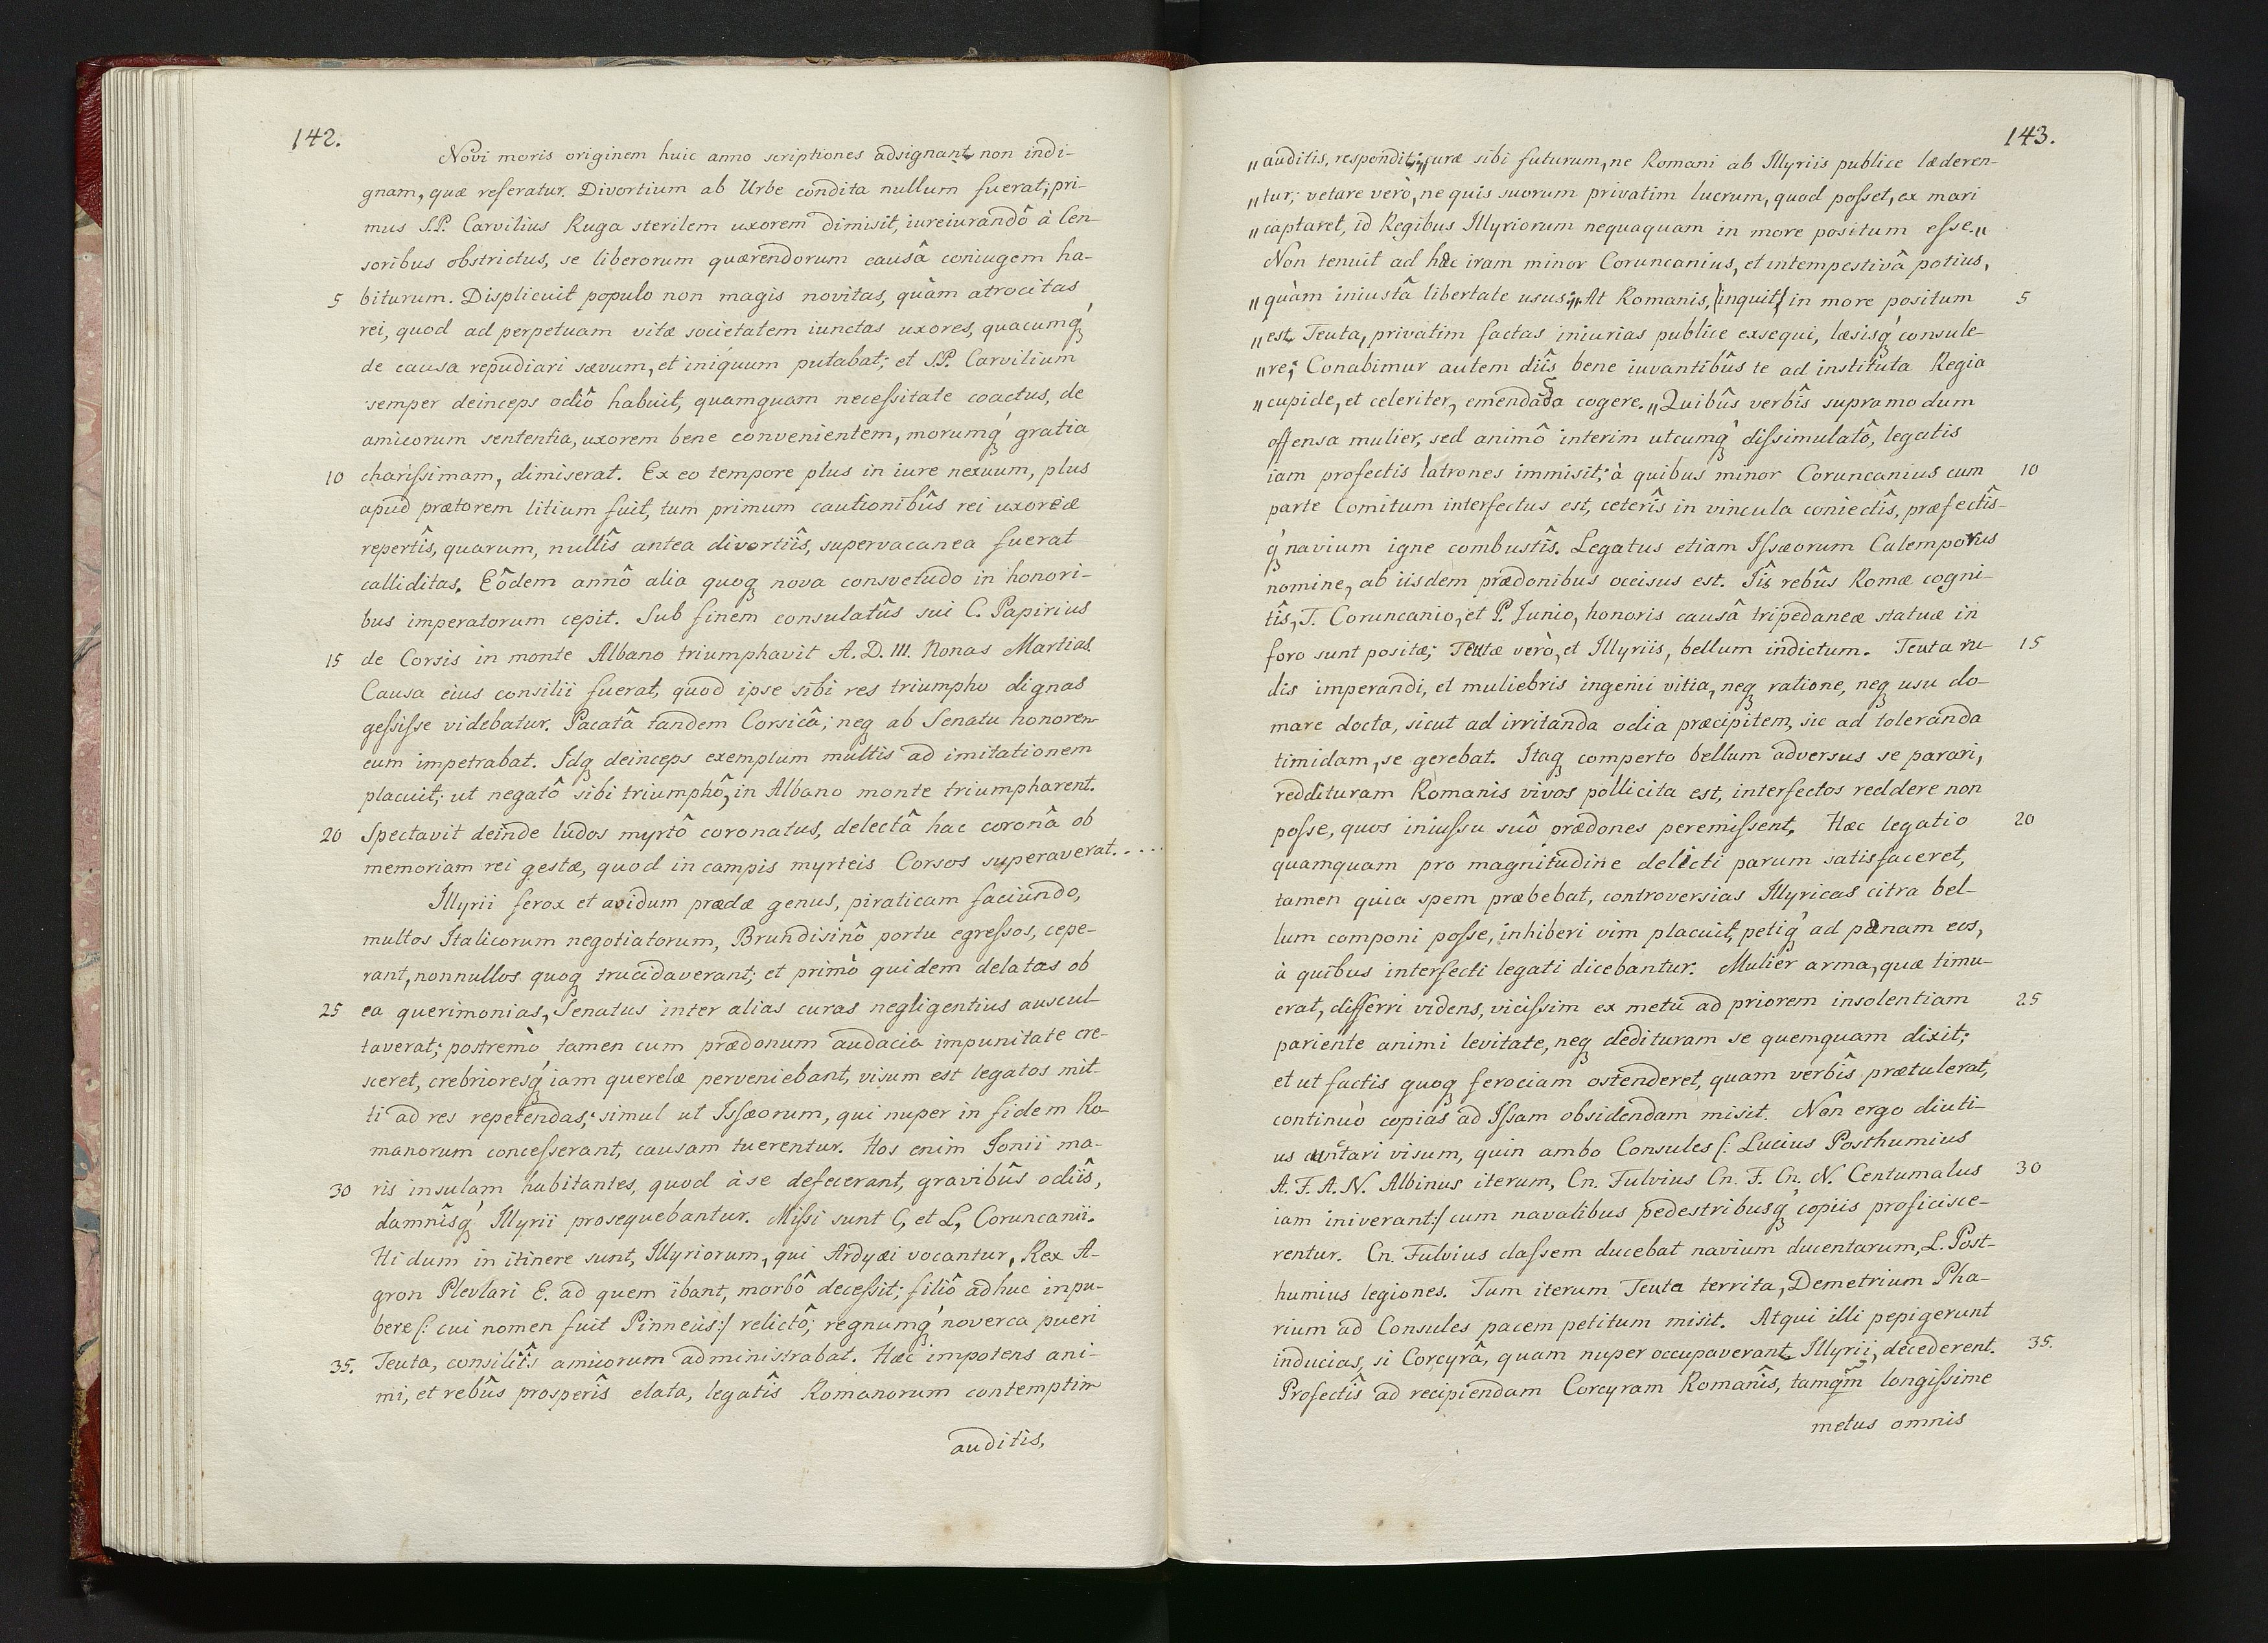 142.
Novi moris originem huic anno scriptiones adsignant non indi-
gnam, quæ referatur. Divortium ab Urbe condita nullum fuerat; pri-
mus S.P. Carvilius Ruga sterilem uxorem dimisit, iureiurandô à Cen-
soribus obstrictus, se liberorum quærendorum causâ coniugem ha-
5 biturum. Displicuit populo non magis novitas, quàm atrocitas
rei, quod ad perpetuam vitæ societatem iunctas uxores, quacumq́
de causa repudiari sævum, et iniquum putabat; et S.P. Carvilium
semper deinceps odiô habuit, quamquam necessitate coactus, de
amicorum sententia, uxorem bene convenientem, morumq́ gratia
10 charissimam, dimiserat. Ex eo tempore plus in iure nexuum, plus
apud prætorem litium fuit, tum primum cautionibûs rei uxoreiæ
repertîs, quarum, nullîs antea divortiîs, supervacanea fuerat
calliditas. Eôdem annô alia quoq nova consvetudo in honori-
bus imperatorum cepit. Sub finem consulatûs sui C. Papirius
15 de Corsis in monte Albano triumphavit A. D. III. Nonas Martias
Causa eius consilii fuerat, quod ipse sibi res triumpho dignas
gessisse videbatur. Pacatâ tandem Corsicâ; neq ab Senatu honorem
eum impetrabat. Idq deinceps exemplum multis ad imitationem
placuit; ut negatô sibi triumphô, in Albano monte triumpharent.
20 Spectavit deinde ludos myrtô coronatus, delectâ hac coronâ ob
memoriam rei gestæ, quod in campis myrteis Corsos superaverat. . . . .
Illyrii ferox et avidum prædæ genus, piraticam faciundo,
multos Italicorum negotiatorum, Brundisinô portu egressos, cepe-
rant, nonnullos quoq trucidaverant; et primò quidem delatas ob
25 ea querimonias, Senatus inter alias curas negligentius auscul-
taverat; postremò tamen cum prædonum audacia impunitate cre-
sceret, crebrioresq́ iam querelæ perveniebant, visum est legatos mit-
ti ad res repetendas; simul ut Issæorum, qui nuper in fidem Ro-
manorum concesserant, causam tuerentur. Hos enim Ionii ma-
30 ris insulam habitantes, quod à se defecerant, gravibûs odiîs,
damnîsq́ Illyrii prosequebantur. Missi sunt C, et L, Coruncanii.
Hi dum in itinere sunt, Illyriorum, qui Ardyæi vocantur, Rex A-
gron Plevlari F. ad quem ibant, morbô decessit; filiô adhuc inpu-
bere [: cui nomen fuit Pinneüs:] relictô; regnumq́ noverca pueri
35. Teuta, consiliîs amicorum administrabat. Hæc impotens ani-
mi, et rebûs prosperîs elata, legatîs Romanorum contemptim
auditis,
143.
„ auditis, respondit; „curæ sibi futurum, ne Romani ab Illyriis publice læderen-
„ tur; vetare verò, ne quis suorum privatim lucrum, quod posset, ex mari
„ captaret, id Regibus Illyriorum nequaquam in more positum esse „
Non tenuit ad hæc iram minor Coruncanius, et intempestivâ potius,
„ quàm iniustâ libertate usus; „At Romanis, [inquit] in more positum 5
„ est Teuta, privatim factas iniurias publice exsequi, læsisq́ consule-
„ re; Conabimur autem diîs bene iuvantibûs te ad instituta Regia
„ cupide, et celeriter, emendada cogere. „ Quibûs verbîs supra modum
offensa mulier, sed animô interim utcumq́ dissimulatô, legatis
iam profectis latrones immisit; à quibus minor Coruncanius cum 10
parte Comitum interfectus est, ceterîs in vincula coniectîs, præfectîs-
q́ navium igne combustîs. Legatus etiam Issæorum Calemporus
nomine, ab iisdem prædonibus occisus est. Iîs rebûs Romæ cogni-
tîs, T. Coruncanio, et P. Iunio, honoris causâ tripedaneæ statuæ in
foro sunt positæ; Teutæ verò, et Illyriis, bellum indictum. Teuta ru- 15
dis imperandi, et muliebris ingenii vitia, neq ratione, neq usu do-
mare docta, sicut ad irritanda odia præcipitem, sic ad toleranda
timidam, se gerebat. Itaq comperto bellum adversus se parari,
reddituram Romanis vivos pollicita est, interfectos reddere non
posse, quos iniussu suô prædones peremissent. Hæc legatio 20
quamquam pro magnitudine delicti parum satisfaceret,
tamen quia spem præbebat, controversias Illyricas citra bel-
lum componi posse, inhiberi vim placuit, petiq́ ad pænam eos,
à quibus interfecti legati dicebantur. Mulier arma, quæ timu-
erat, differri videns, vicissim ex metu ad priorem insolentiam 25
pariente animi levitate, neq dedituram se quemquam dixit;
et ut factis quoq ferociam ostenderet, quam verbîs prætulerat,
continuò copias ad Issam obsidendam misit. Non ergo diuti-
us cunctari visum, quin ambo Consules [: Lucius Posthumius
A. F. A. N. Albinus iterum, Cn. Fulvius Cn. F. Cn. N. Centumalus 30
iam iniverant:] cum navalibus pedestribusq́ copiis proficisce-
rentur. Cn. Fulvius classem ducebat navium ducentarum, L. Post-
humius legiones. Tum iterum Teuta territa, Demetrium Pha-
rium ad Consules pacem petitum misit. Atqui illi pepigerunt
inducias, si Corcyrâ, quam nuper occupaverant Illyrii, decederent. 35.
Profectîs ad recipiendam Corcyram Romanîs, tamq̃m longissime
metus omnis